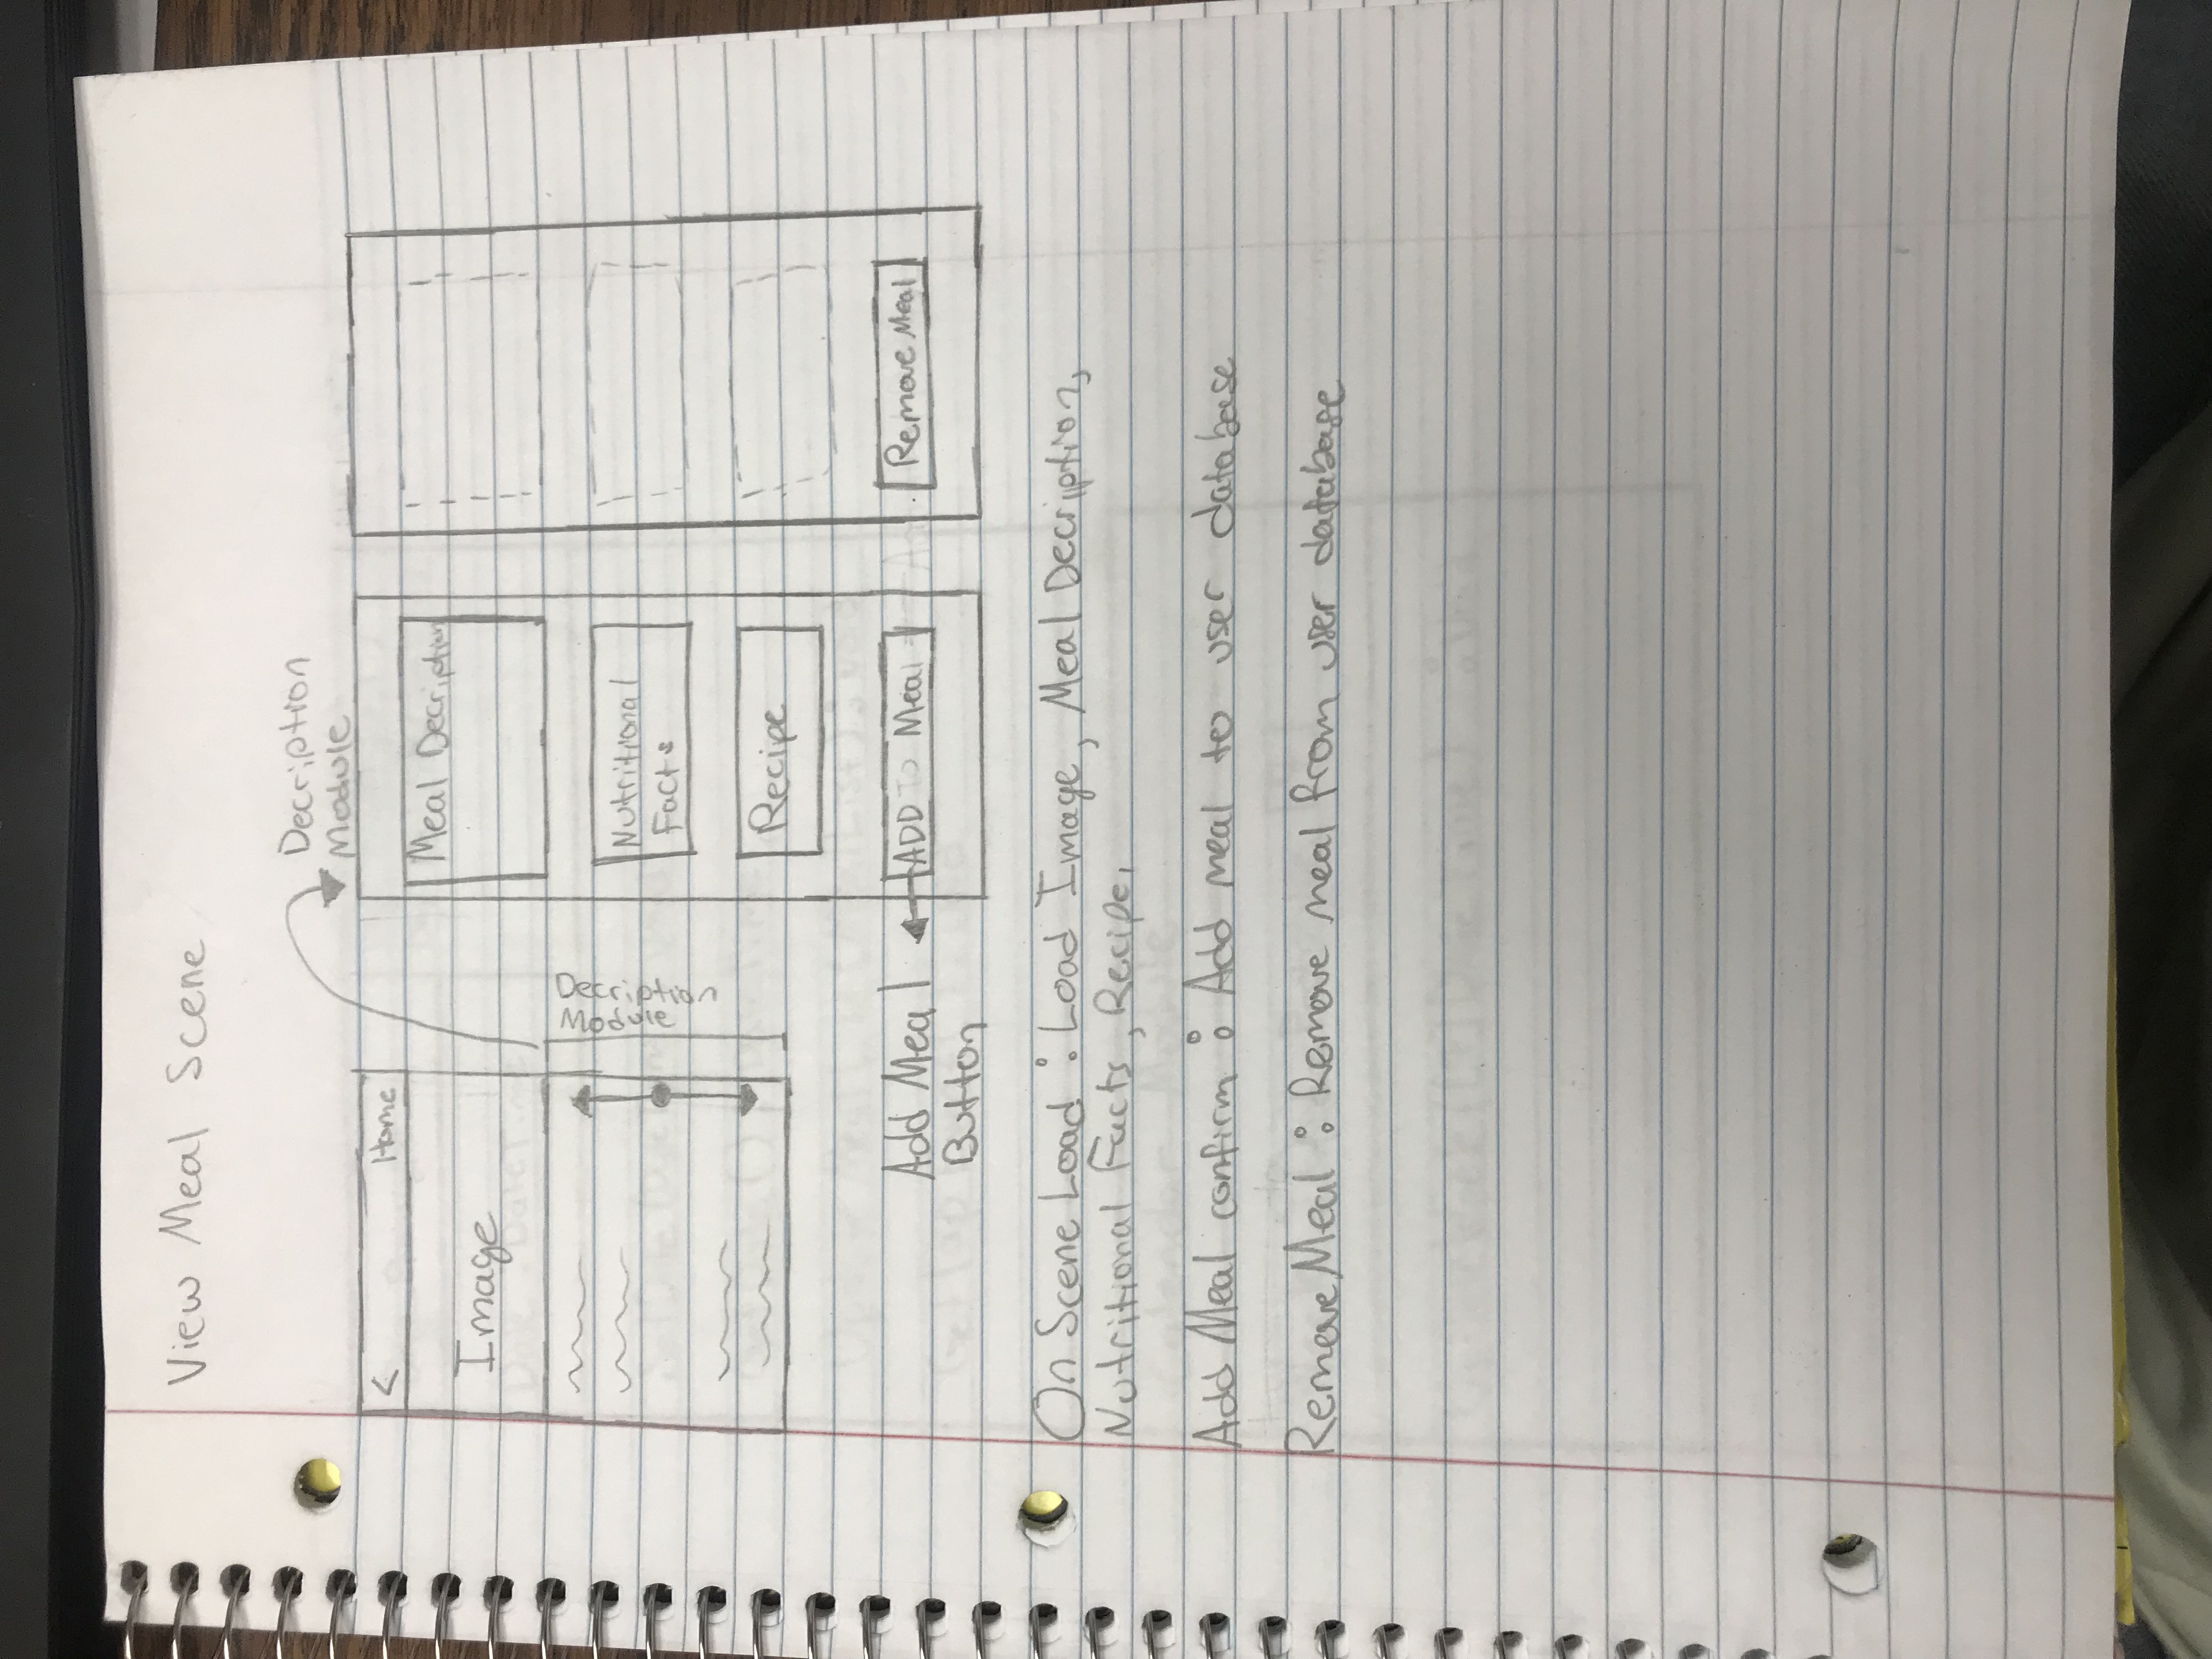 View Meal Scene
Decription
Module
< Home
Image
Decription
Module
Meal Decription
Nutritional
Facts
Recipe
ADD To Meal
Add Meal
Button
Remove Meal
On Scene Load : Load Image, Meal Decription,
Nutritional Facts, Recipe.
Add Meal confirm : Add meal to user database
Remove Meal : Remove meal from user database